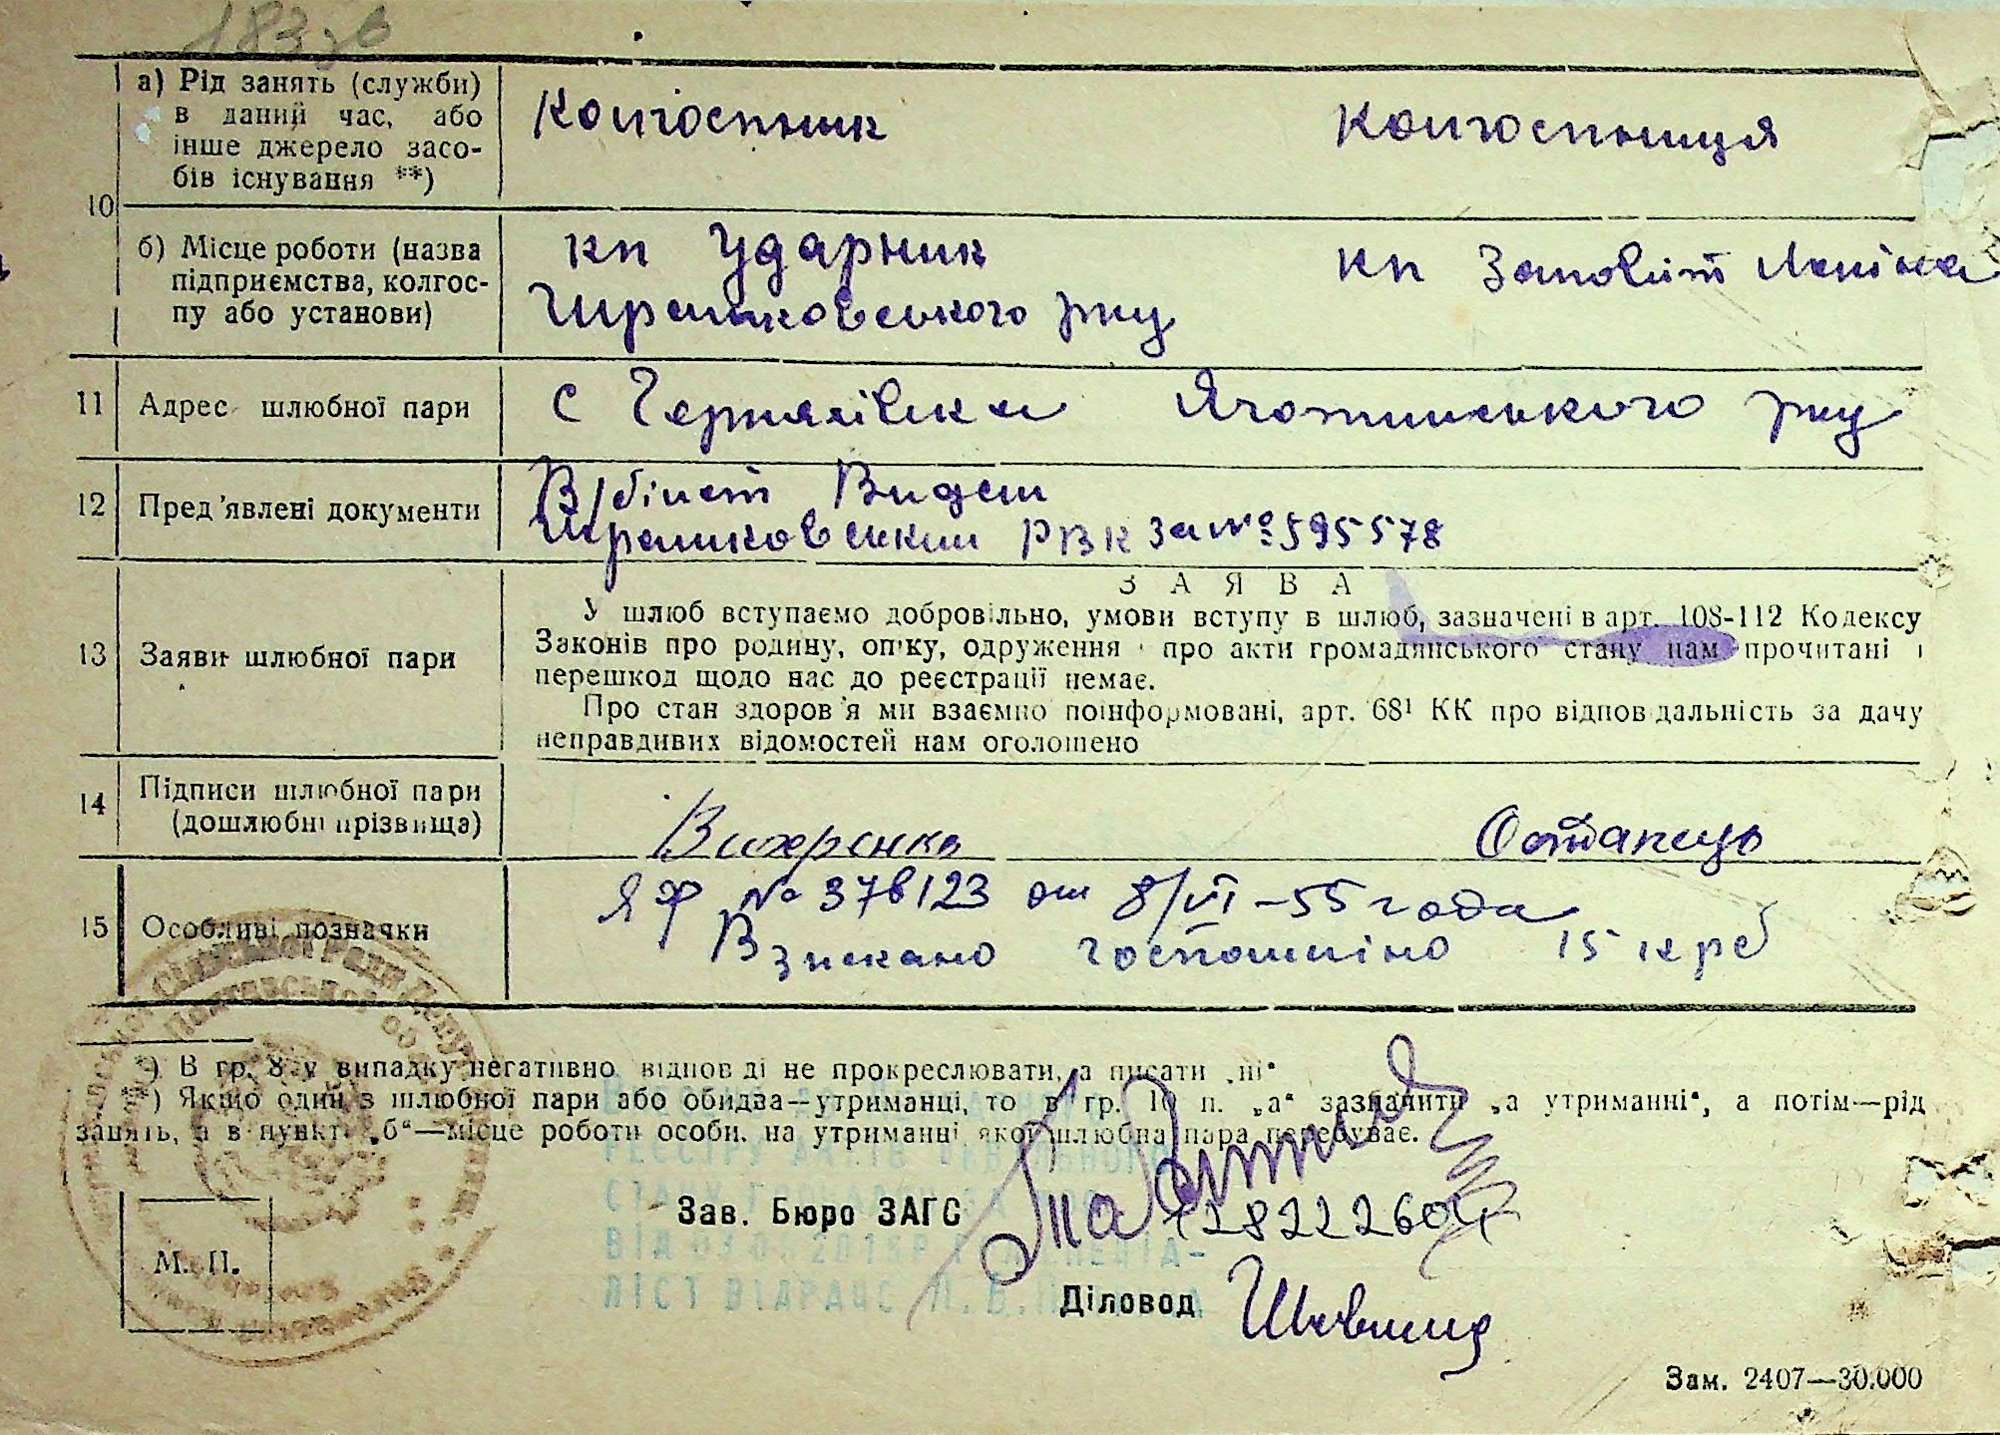 183зв
10
а) Рід занять (служби)
в даний час, або
інше джерело засо-
бів існування **)
Колгоспник
Колгоспниця
б) Місце роботи (назва
підприємства, колгос-
пу або установи)
кп Ударник
рку
кп Заповіт Леніна
11
Адрес шлюбної пари
с Яготинського рку
12
Пред'явлені документи
В/білет Видан
РВК за № 595578
13
Заяви шлюбної пари
ЗАЯВА
У шлюб вступаємо добровільно, умови вступу в шлюб, зазначені в арт. 108-112 Кодексу
Законів про родину, опіку, одруження і про акти громадянського стану нам прочитані і
перешкод щодо нас до реєстрації немає.
Про стан здоров'я ми взаємно поінформовані, арт. 68¹ КК про відповідальність за дачу
неправдивих відомостей нам оголошено
14
Підписи шлюбної пари
(дошлюбні прізвища)
Вихренко
Остапець
15
Особливі позначки
ЯФ № 376123 от 8/VI-55 года
Взискано госпошліно 15 крб
*) В гр. 8 у випадку негативно відповіді не прокреслювати, а писати „ні“
**) Якщо один з шлюбної пари або обидва—утриманці, то в гр. 10 п. „а“ зазначити „а утриманні“, а потім—рід
занять, а в пункті „б“—місце роботи особи, на утриманні якої шлюбна пара перебуває.
РЕЄСТРУ АКТІВ ЦИВІЛЬНОГО
СТАНУ ГРОМАДЯН ЗА
ВІД
Зав. Бюро ЗАГС
12822260
М. П.
Діловод
Зам. 2407—30.000